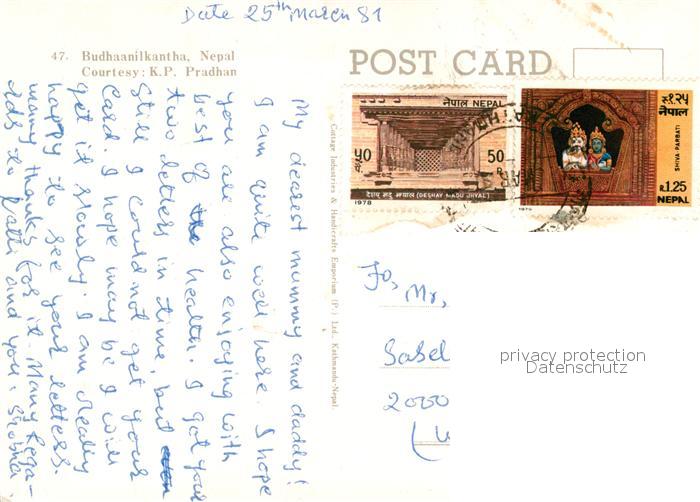 Date 25th March 81
47. Budhaanilkantha, Nepal
Courtesy: K.P. Pradhan
POST CARD
My dearest mummy and daddy!
I am quite well here. I hope
you are also enjoying with
best of the health. I got your
two letters in time, but
still I could not get your
card. I hope may be I will
get it slowly. I am really
happy to see your letters.
many thanks for it. Many Rega-
ads to Patti and you. Shobha.
Cottage Industries & Handicrafts Emporium (P.) Ltd., Kathmandu-Nepal.
नेपाल NEPAL
५०
पै.
50
P.
देशाय् मदु झ्याल (DESHAY MADU JHYAL)
1978
रु.१.२५
नेपाल
SHIVA-PARBATI
R.1.25
NEPAL
To,
Mr,
Basel
2000
privacy protection
Datenschutz